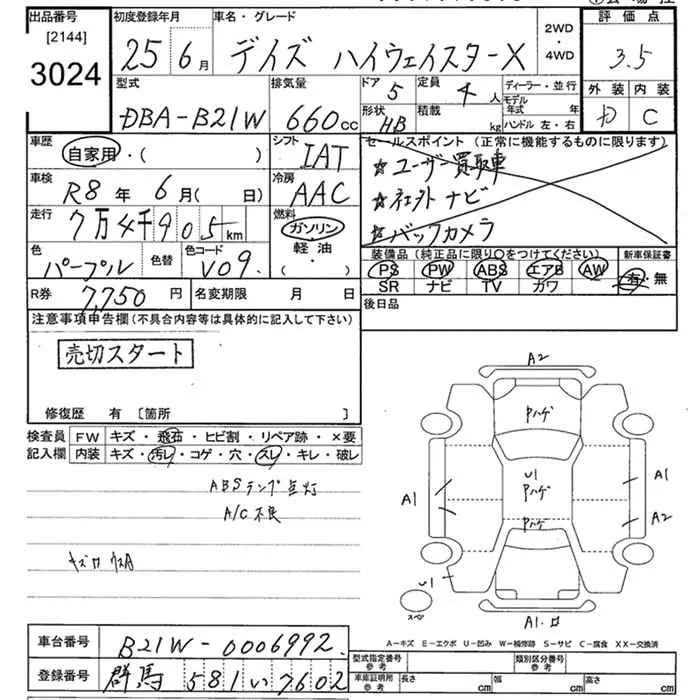 出品番号
[2144]
3024
初度登録年月
25年6月
車名・グレード
デイズ ハイウェイスターX
2WD
・
4WD
評価点
3.5
外装 内装
D C
型式
DBA-B21W
排気量
660cc
ドア
5
定員
4人
形状
HB
積載
kg
ディーラー・並行
モデル年式 年
ハンドル 左・右
車歴
自家用・( )
シフト
IAT
車検
R8年6月( 日)
冷房
AAC
走行
7万4千905km
燃料
ガソリン
軽油
・( )
色
パープル
色替
色コード
V09.
R券
7,750円
名変期限 月 日
セールスポイント(正常に機能するものに限ります)
☆ユーザー買取車
☆社外ナビ
☆バックカメラ
装備品(純正品に限り○をつけてください)
PS PW ABS エアB AW
SR ナビ TV カワ
新車保証書
有・無
後日品
注意事項申告欄(不具合内容等は具体的に記入して下さい)
売切スタート
修復歴 有 [箇所 ]
検査員
記入欄
FW キズ・飛石・ヒビ割・リペア跡・×要
内装 キズ・汚レ・コゲ・穴・スレ・キレ・破レ
ABSランプ点灯
A/C不良
A2
Pハゲ
U1
Pハゲ
Pハゲ
A1
A1
A2
U1
スペア
A1.ロ
A-キズ E-エクボ U-凹み W-補修跡 S-サビ C-腐食 XX-交換済
車台番号
B21W-0006992.
登録番号
群馬 581 い 7602
型式指定番号
参考
類別区分番号
参考
車庫証明用
参考
長さ cm
幅 cm
高さ cm